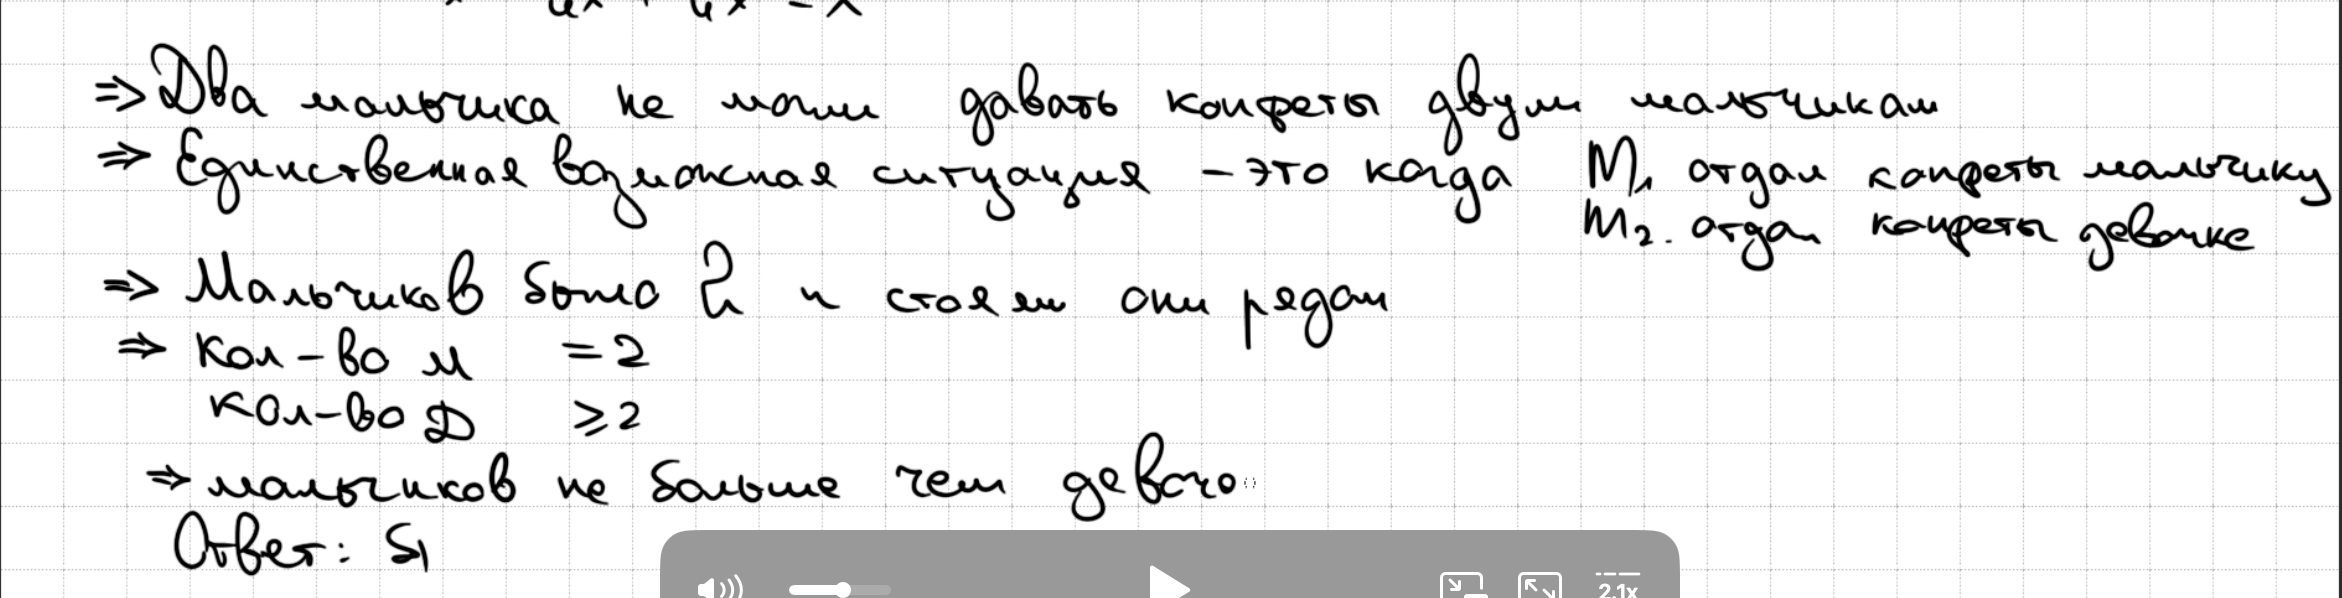 ⇒ Два мальчика не могли давать конфеты двум мальчикам
⇒ Единственная возможная ситуация – это когда М₁ отдал конфеты мальчику
М₂. отдал конфеты девочке
⇒ Мальчиков было 2 и стояли они рядом
⇒ кол-во м = 2
кол-во Д ⩾ 2
⇒ мальчиков не больше чем девочо
Ответ: Б)
2.1x